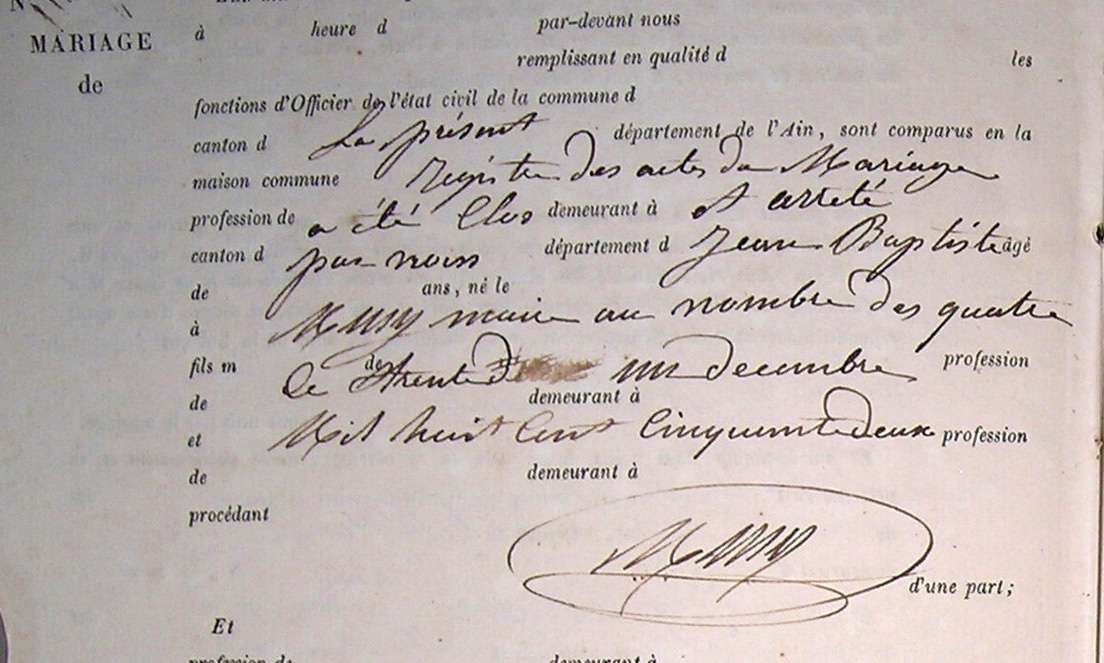 N
MARIAGE
de
à heure d par-devant nous
remplissant en qualité d les
fonctions d'Officier de l'état civil de la commune d
canton d département de l'Ain, sont comparus en la
Le présent
maison commune
registre des actes de Mariage
profession de demeurant à
a été Clos et arrêté
canton d département d âgé
par nous Jean Baptiste
de ans, né le
à
Mussy maire au nombre des quatre
fils m de profession
le trente un decembre
de demeurant à
et profession
Mil huit Cent Cinquante deux
de demeurant à
procédant
Mussy
d'une part;
Et
profession de demeurant à